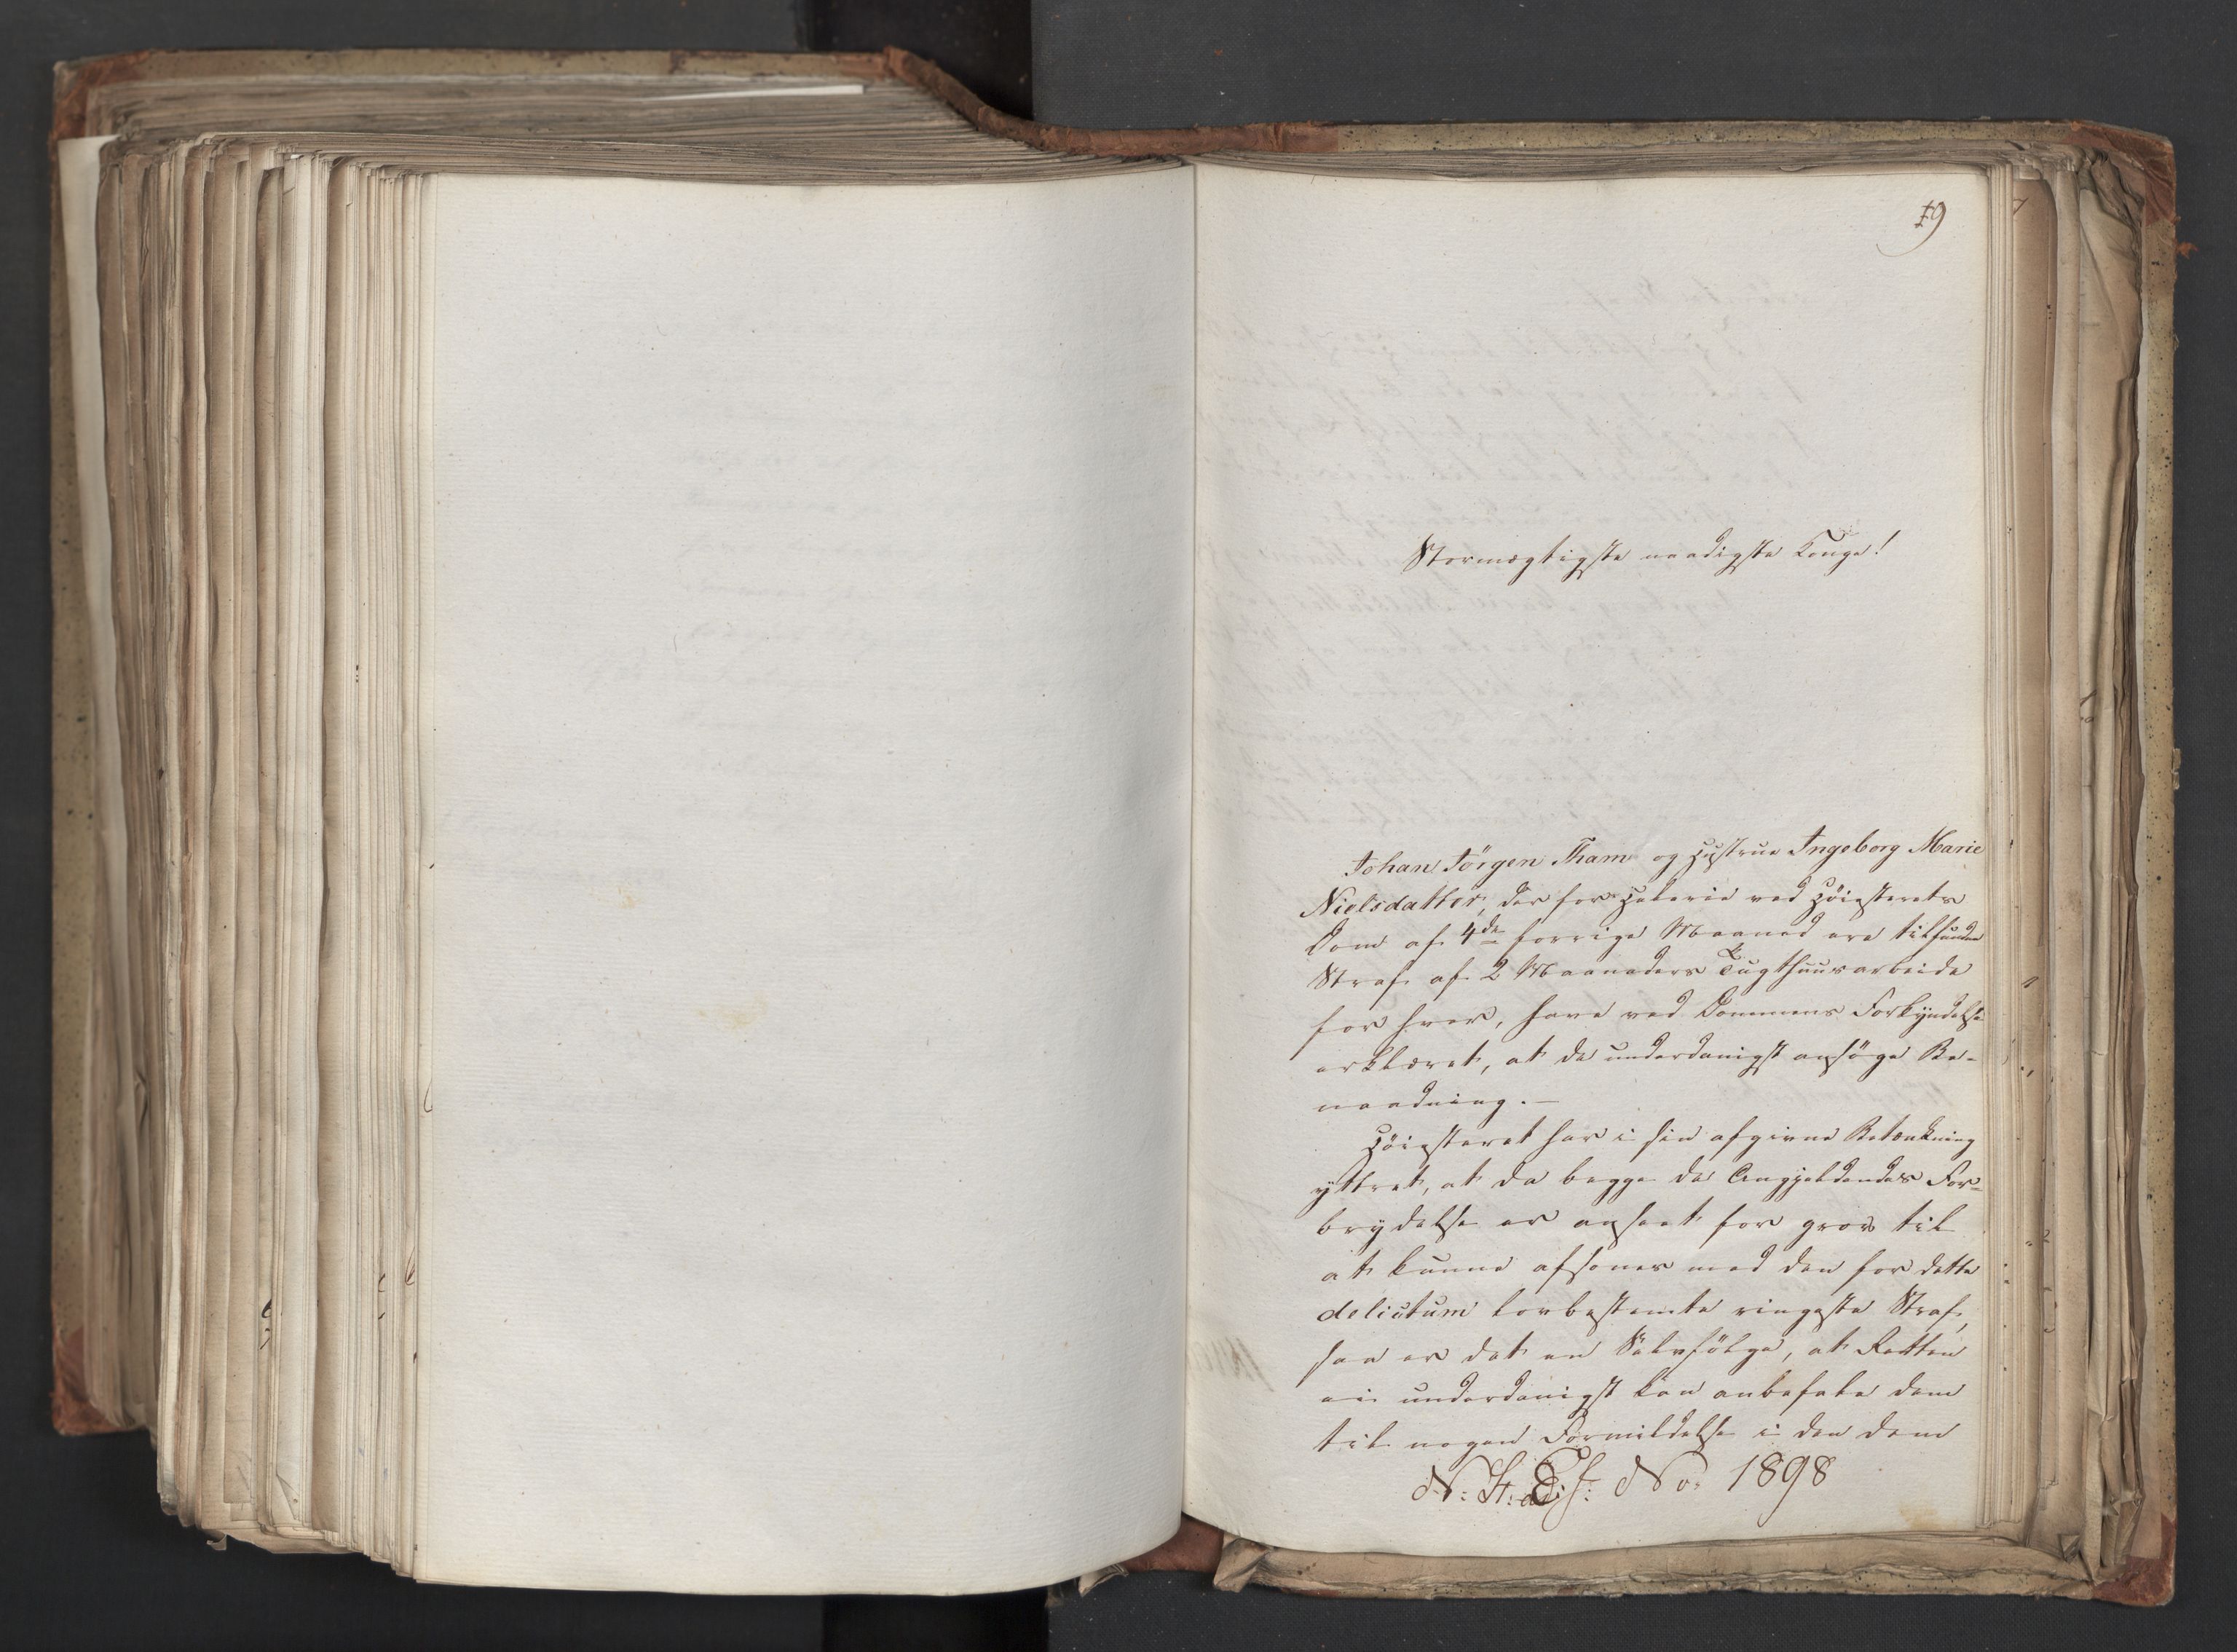 19
Stormægtigste naadigste Konge!
Johan Jörgen Tham og Hustrue Ingeborg Marie
Nielsdatter, der for Hælerie ved Höiesterets
Dom af 4de forrige Maaned ere tilfundne
Straf af 2 Maaneders Tugthuusarbeide
for hver, have ved Dommens Forkyndelse
erklæret, at de underdanigst ansöge Be-
naadning. -
Höiesteret har i sin afgivne Betænkning
yttret, at da begge de Angjældendes For-
brydelse er anseet for grov til
at kunne afsones med den for dette
delictum lovbestemte ringeste Straf,
saa er det en Selvfölge, at Retten
ei underdanigst kan anbefale dem
til nogen Formildelse i den dem
No. 1898